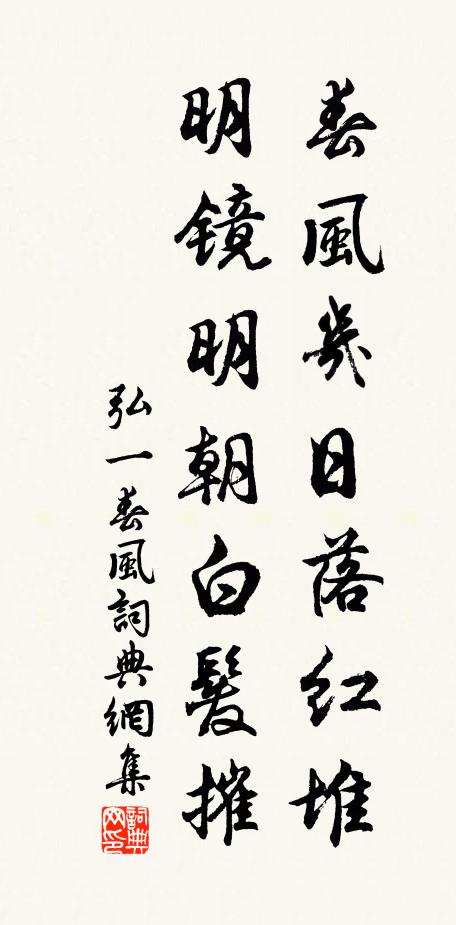 春風幾日落紅堆
明鏡明朝白髮摧
弘一春風詞典網集
詞典
网印